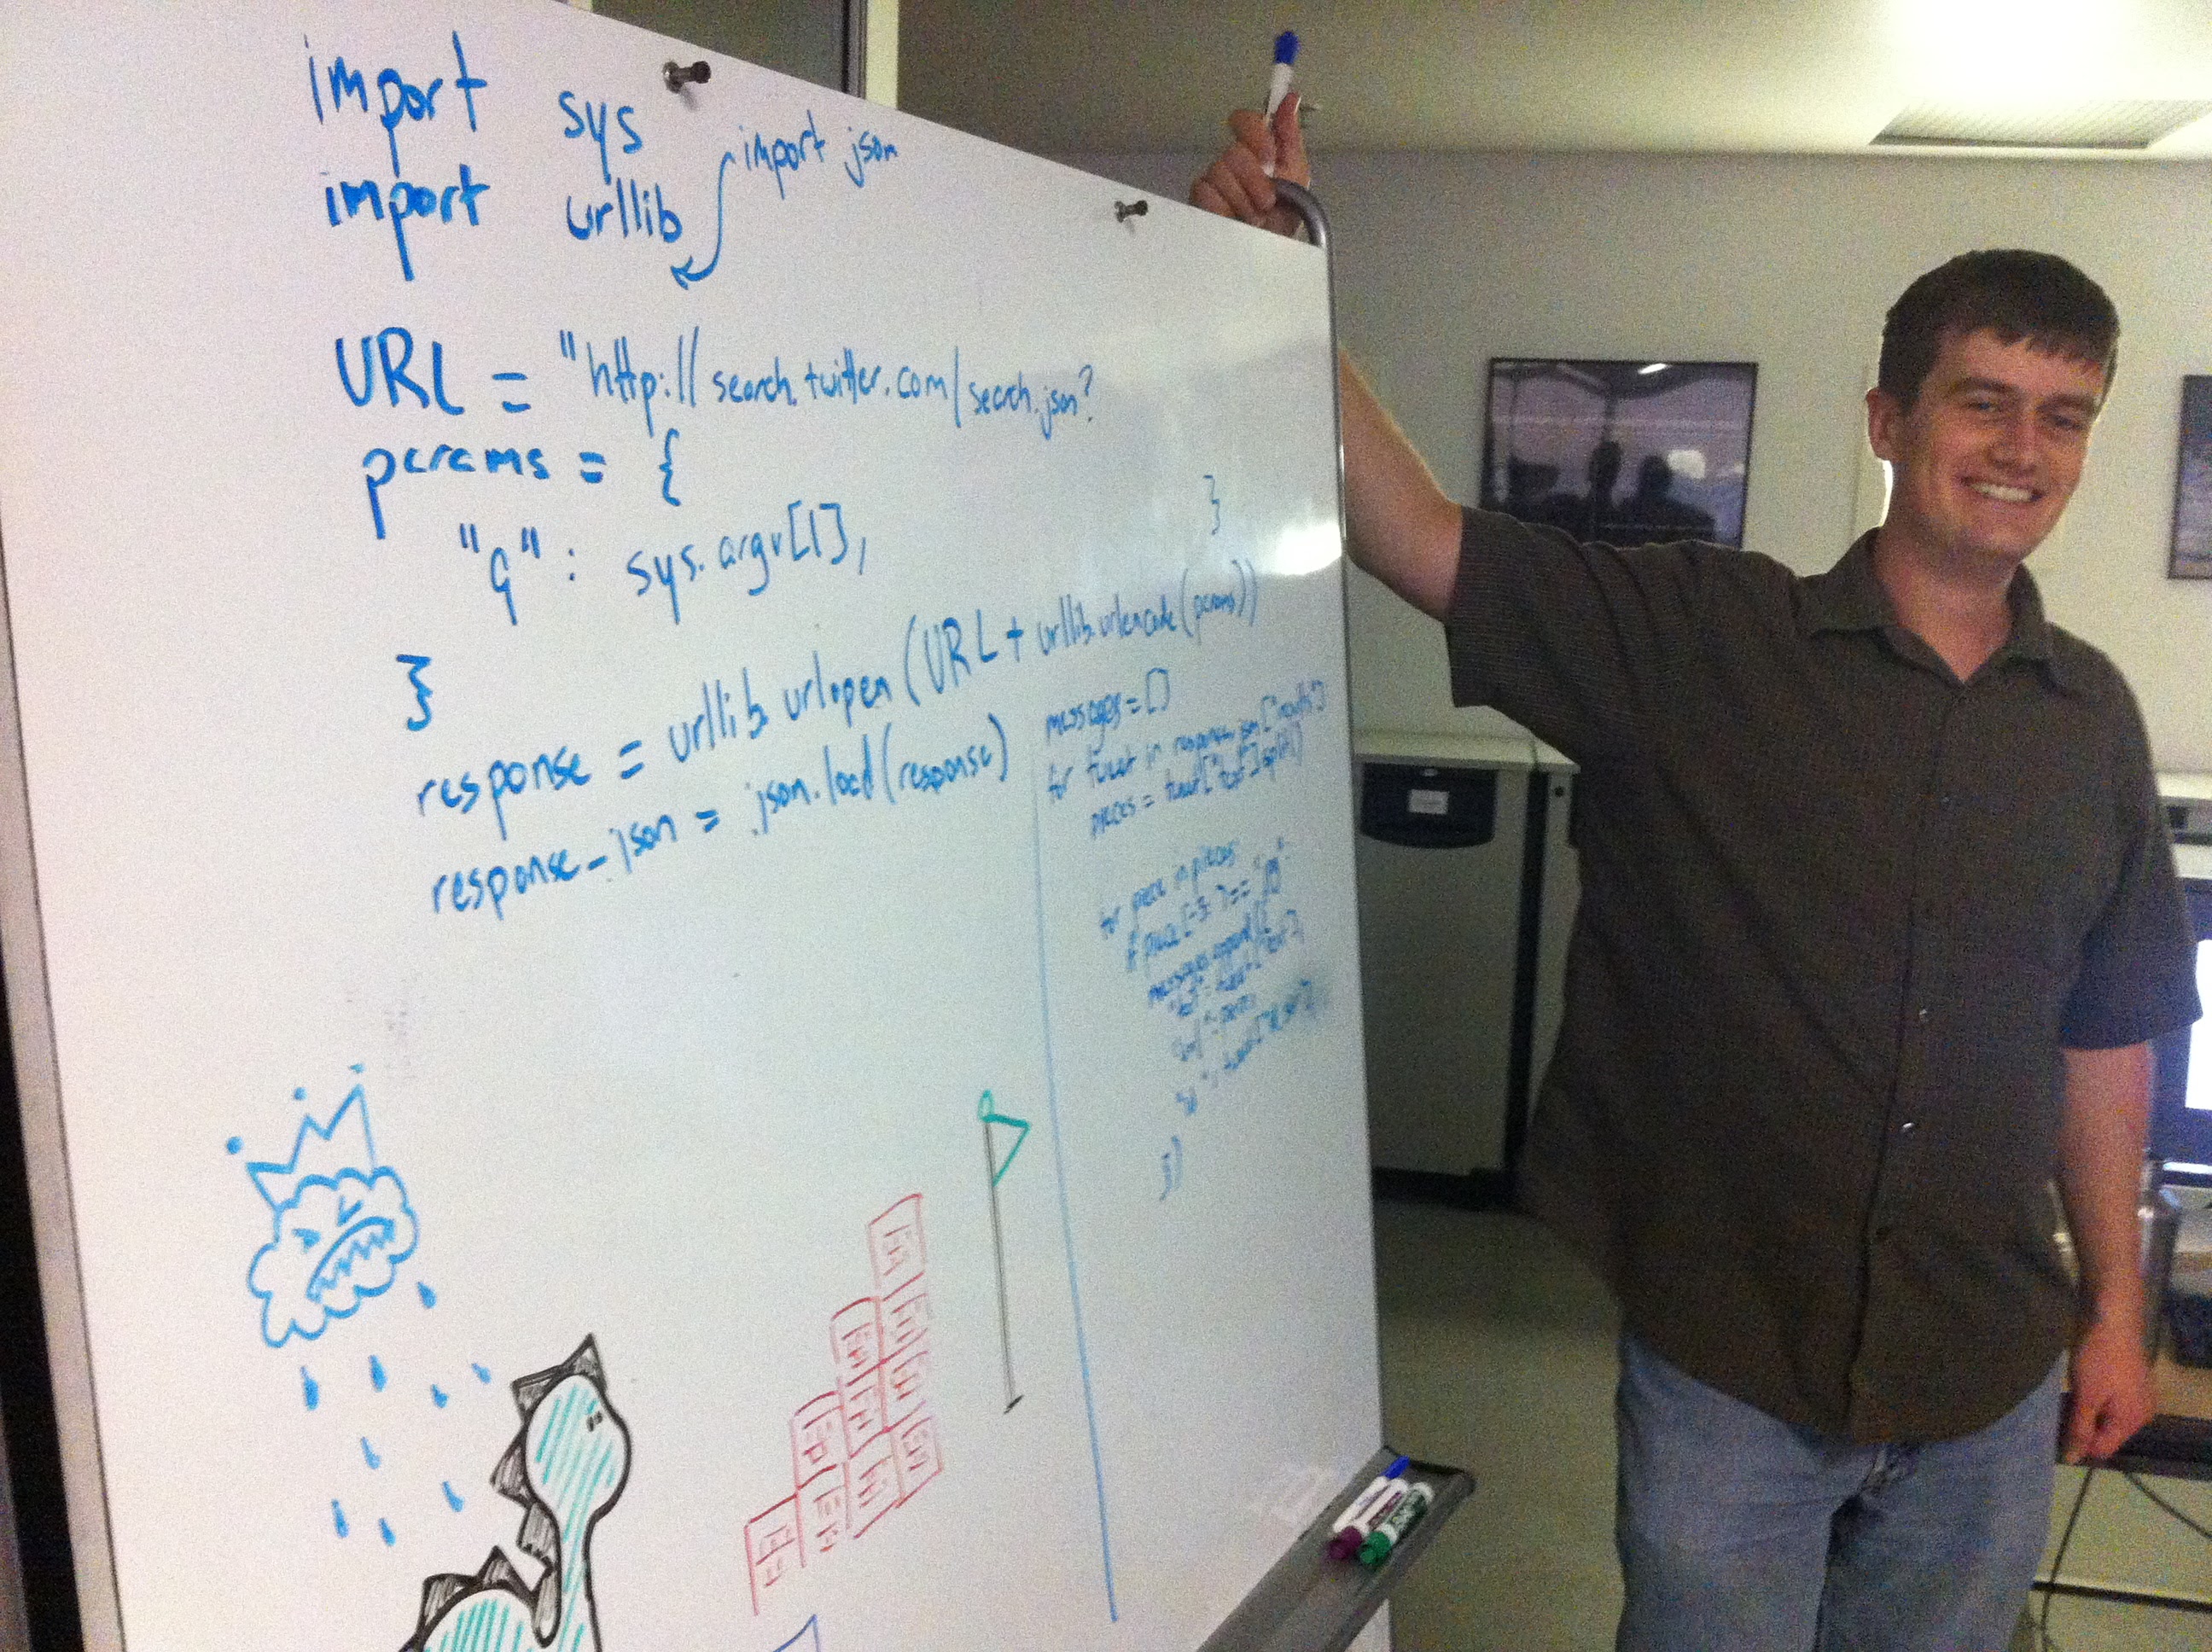 import sys
import urllib
import json
URL = "http://search.twitter.com/search.json?
params = {
"q": sys.argv[1],
}
}
response = urllib.urlopen(URL + urllib.urlencode(params))
response_json = json.load(response)
messages = []
for tweet in response_json["results"]
pieces = tweet["text"].split()
for piece in pieces
if piece[-3:] ==
messages.append({
"text": tweet["text"],
})